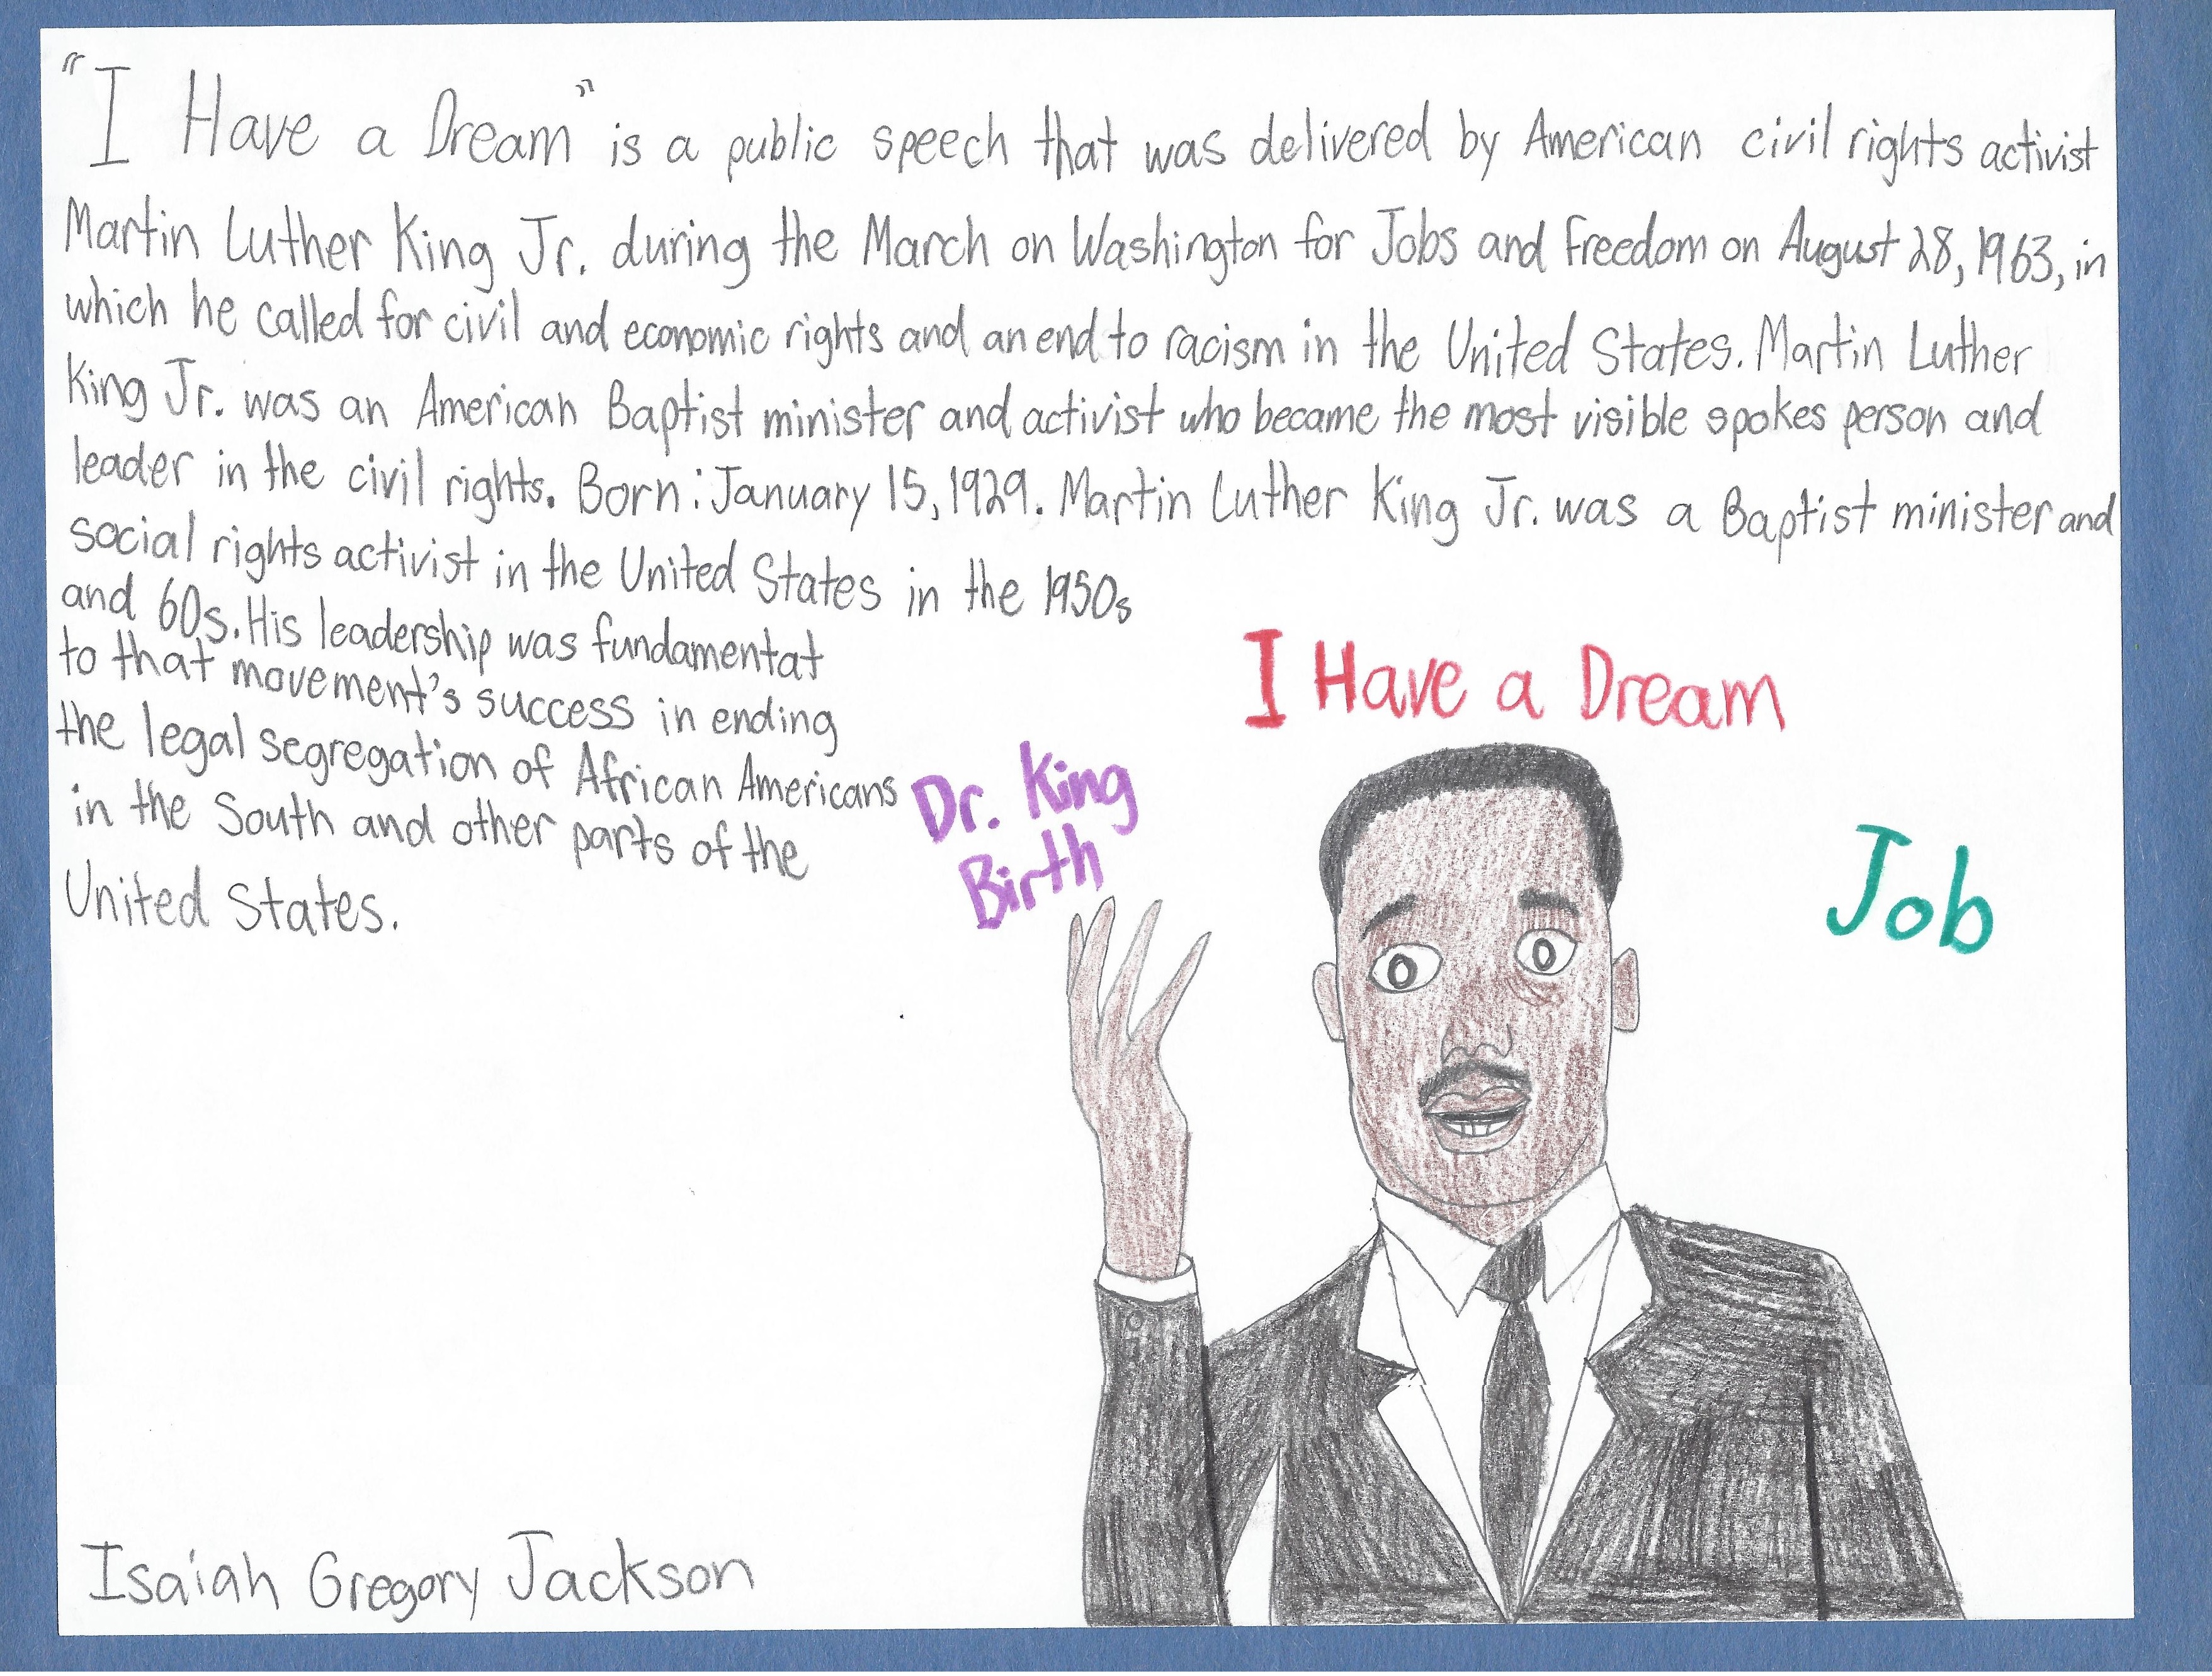 "I Have a Dream" is a public speech that was delivered by American civil rights activist
Martin Luther King Jr. during the March on Washington for Jobs and Freedom on August 28, 1963, in
which he called for civil and economic rights and an end to racism in the United States. Martin Luther
King Jr. was an American Baptist minister and activist who became the most visible spokes person and
leader in the civil rights. Born: January 15, 1929. Martin Luther King Jr. was a Baptist minister and
social rights activist in the United States in the 1950s
and 60s. His leadership was fundamentat
to that movement's success in ending
the legal segregation of African Americans
in the South and other parts of the
United States.
I Have a Dream
Dr. King
Birth
Job
Isaiah Gregory Jackson